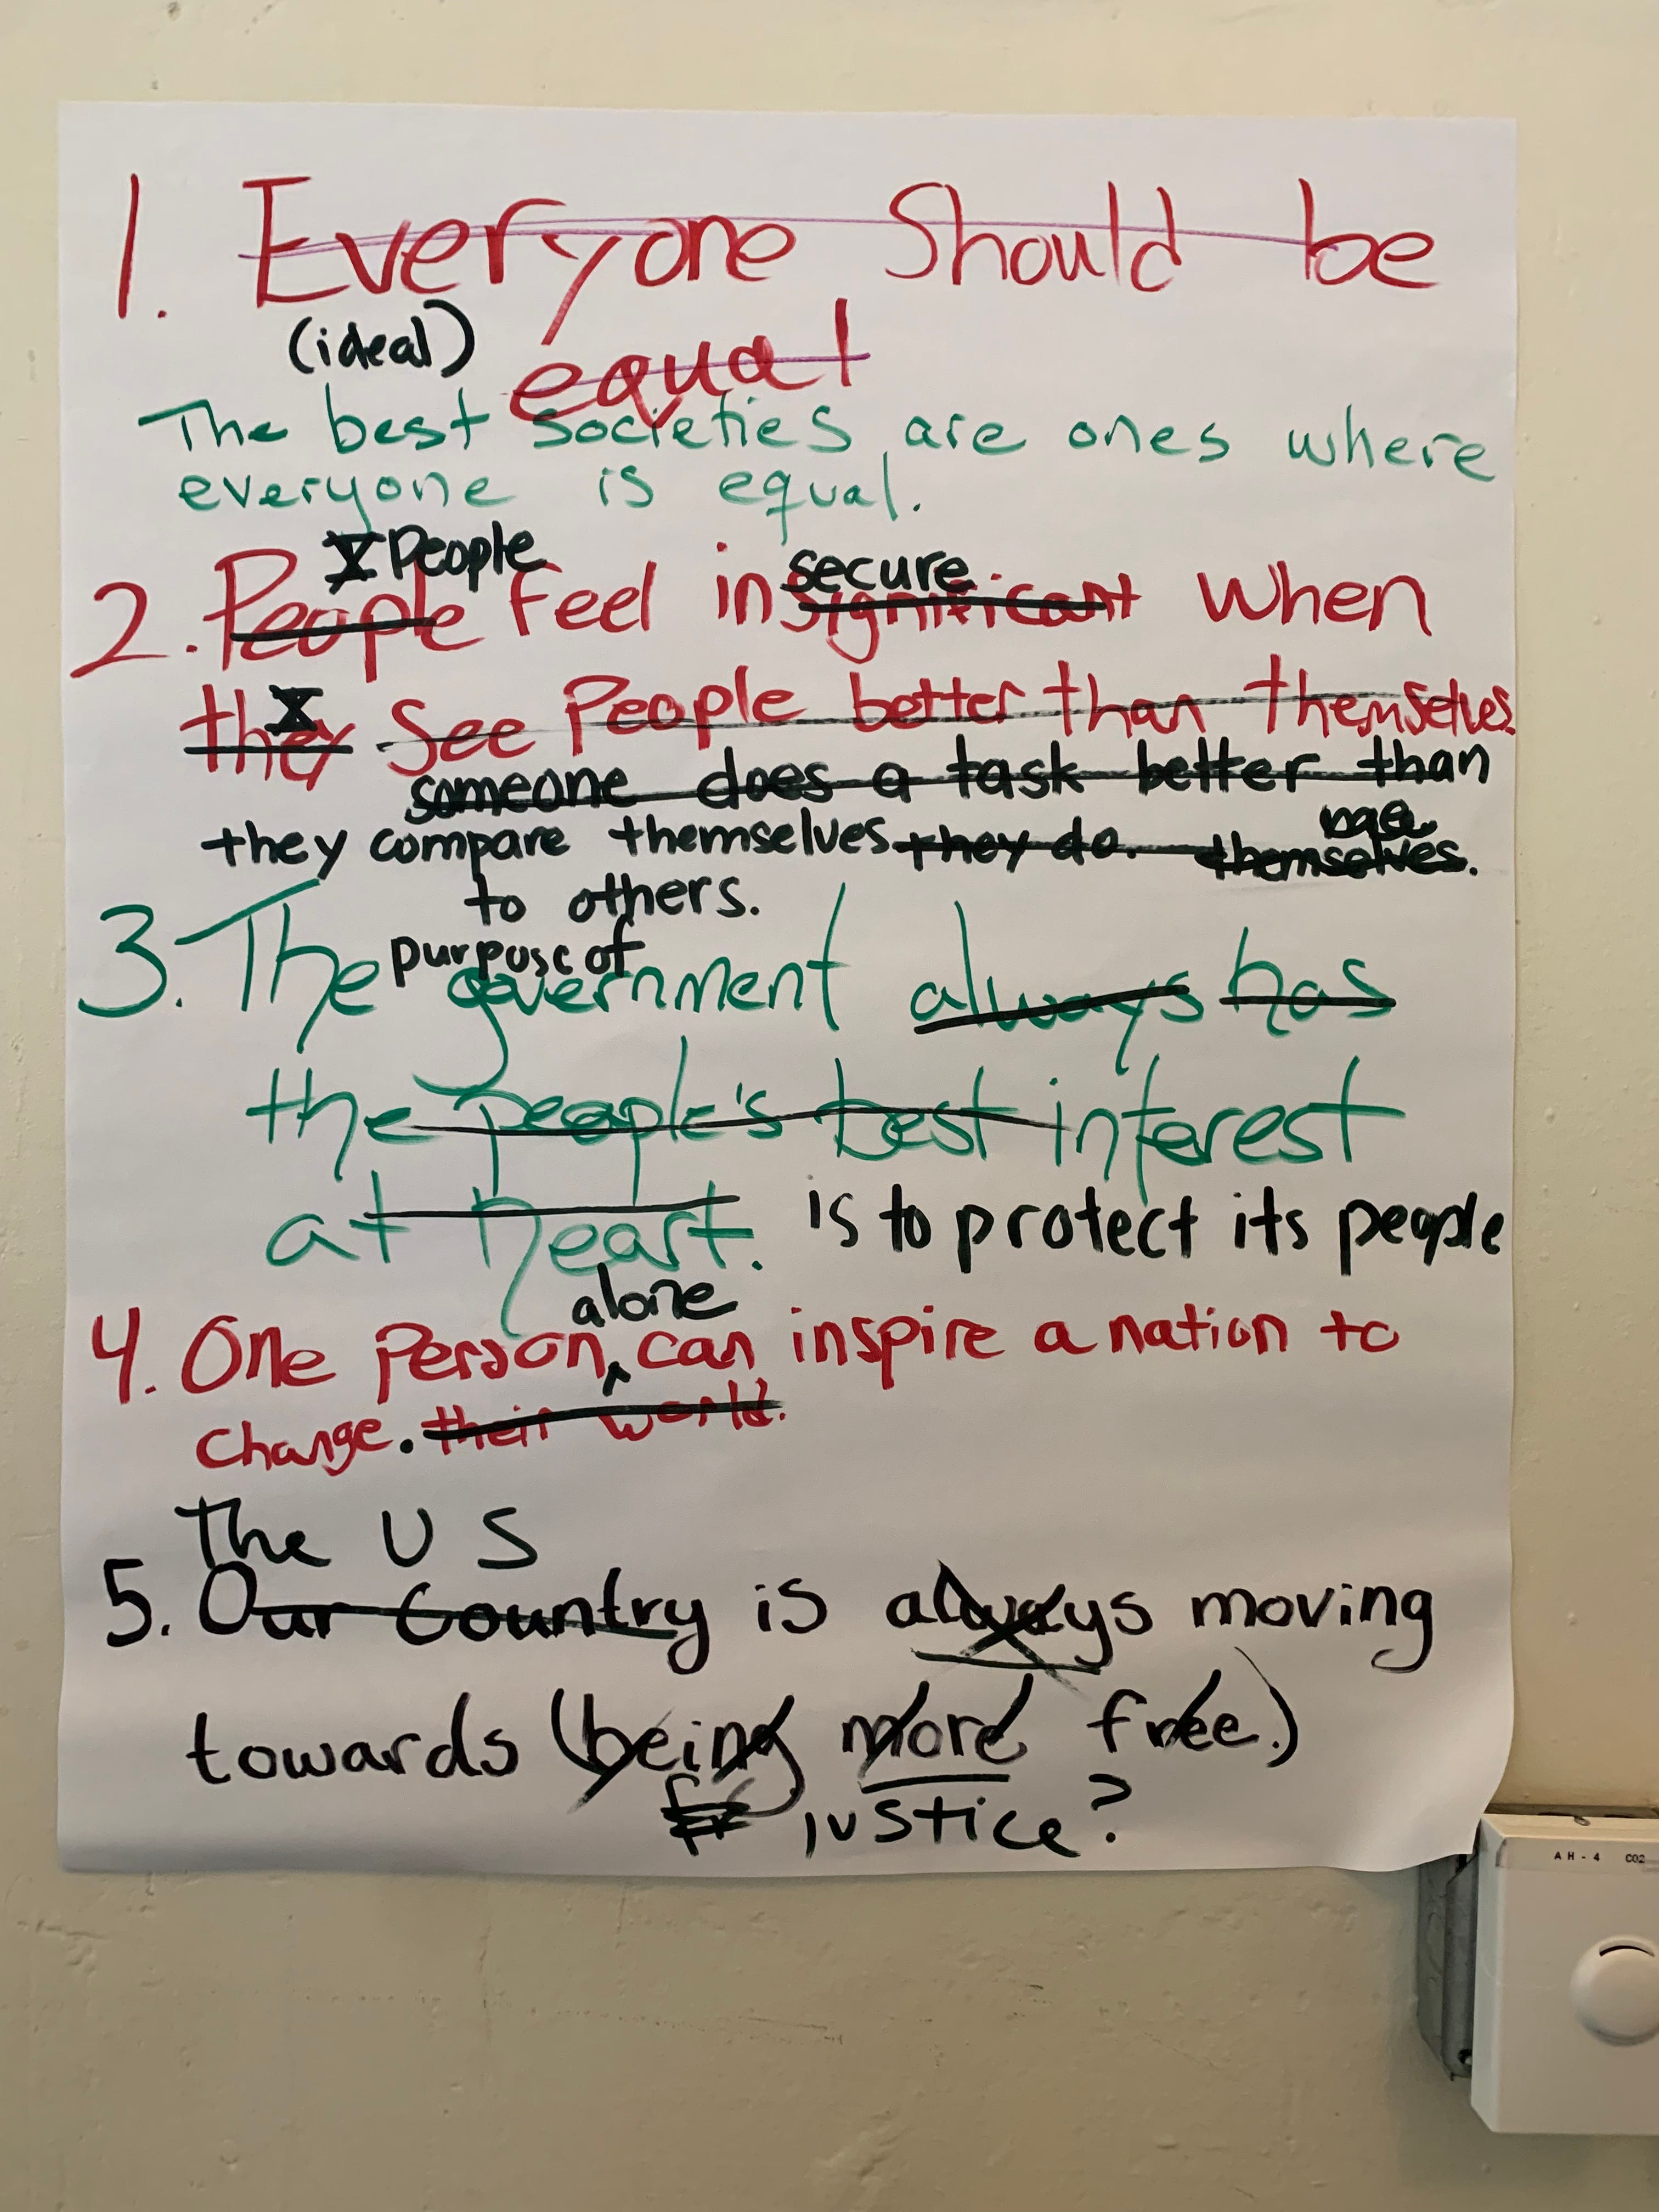 1. Everyone Should be
(ideal) equal
The best societies are ones where
everyone is equal.
I People secure
2. People feel insignificant when
they I see People better than themselves.
someone does a task better than
me
they compare themselves they do. themselves.
to others.
purpose of
3. The government always has
the people's best interest
at heart. is to protect its people
alone
4. One Person can inspire a nation to
change. their world.
The US
5. Our Country is always moving
towards (being more free.)
justice?
AH-4 CO2